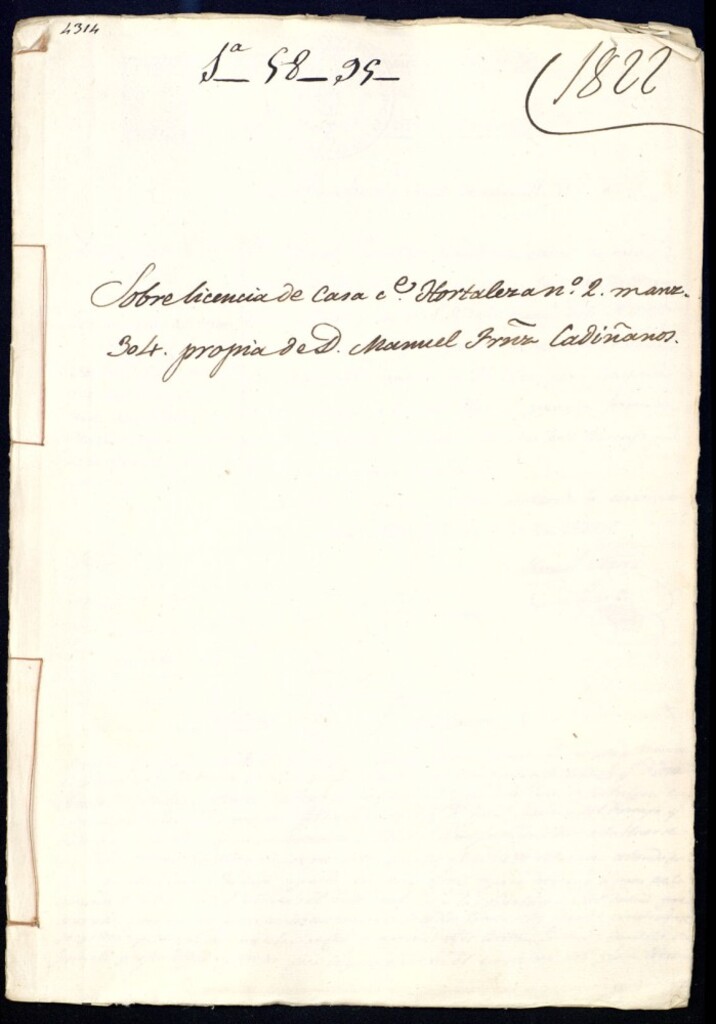 4314
1ª - 58 - 95 -
1822
Sobre licencia de Casa c.e Hortaleza n.º 2. manz.
304. propia de D. Manuel Frñz Cadiñanos.